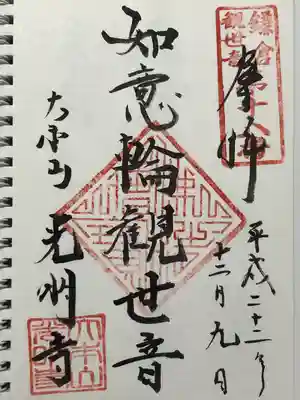 鎌倉
観世音
第十八番
奉拝
平成二十二年
十二月九日
如意輪觀世音
大本山 光明寺